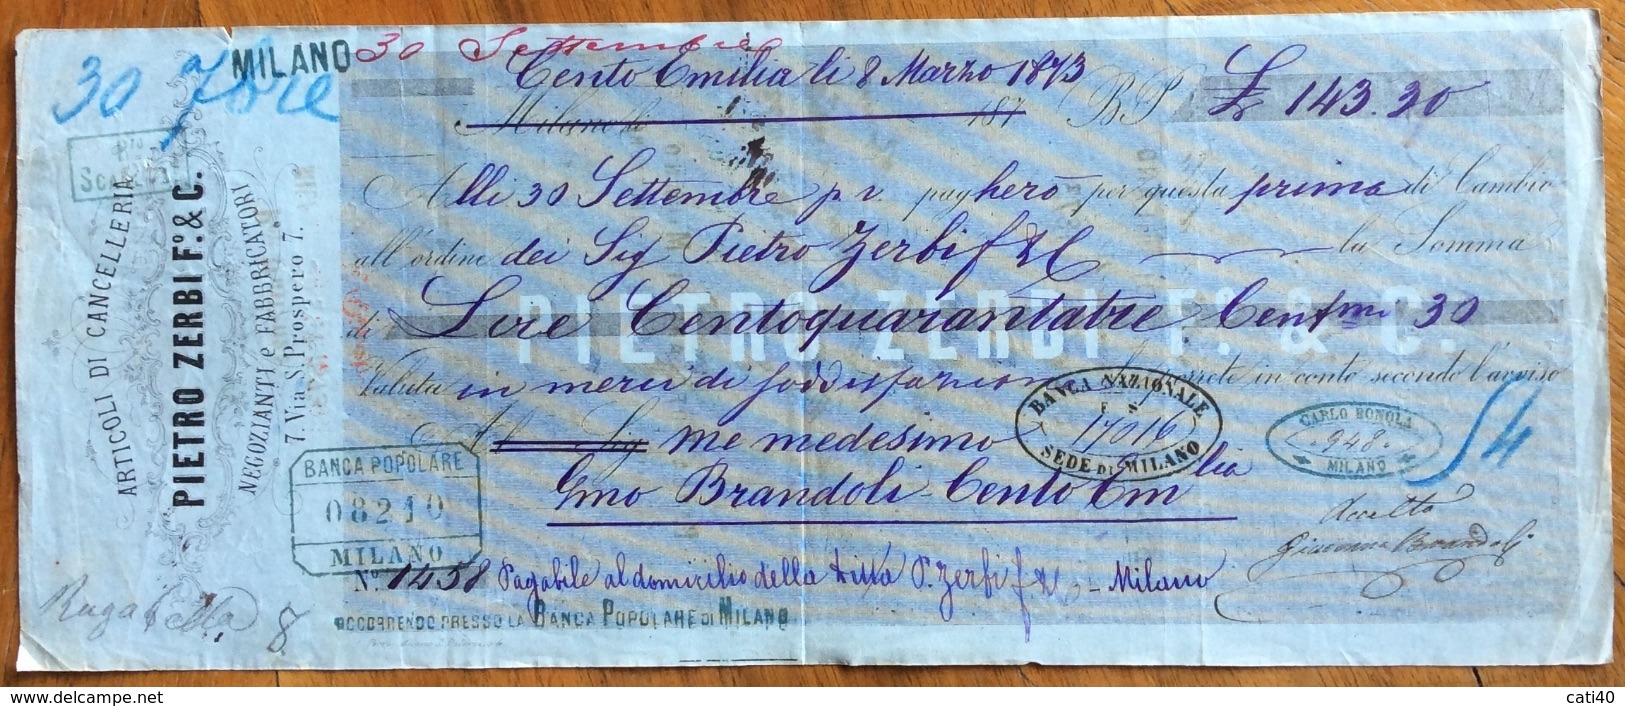 MILANO
30 Settembre
30 7bre
Cento Emilia li 8 Marzo 1873
Milano li 187
B.P. £ 143.30
Alli 30 Settembre p.v. pagherò per questa prima di Cambio
all'ordine dei Sig Pietro Zerbi f & C la Somma
di Lire Centoquarantatre Centmi 30
PIETRO ZERBI F.º & C.
Valuta in merci di soddisfazione porrete in conto secondo l'avviso
Al Sig me medesimo
Gmo Brandoli - Cento Emlia
Nº 1458 Pagabile al domicilio della ditta P. Zerbi f & C - Milano
OCCORRENDO PRESSO LA BANCA POPOLARE DI MILANO
Accetto
Giacomo Brandoli
ARTICOLI DI CANCELLERIA
PIETRO ZERBI Fº. & C.
NEGOZIANTI e FABBRICATORI
7. Via S. Prospero 7.
BANCA POPOLARE
08210
MILANO
BANCA NAZIONALE
17016
SEDE DI MILANO
CARLO BONOLA
948
MILANO
54
8
cati40